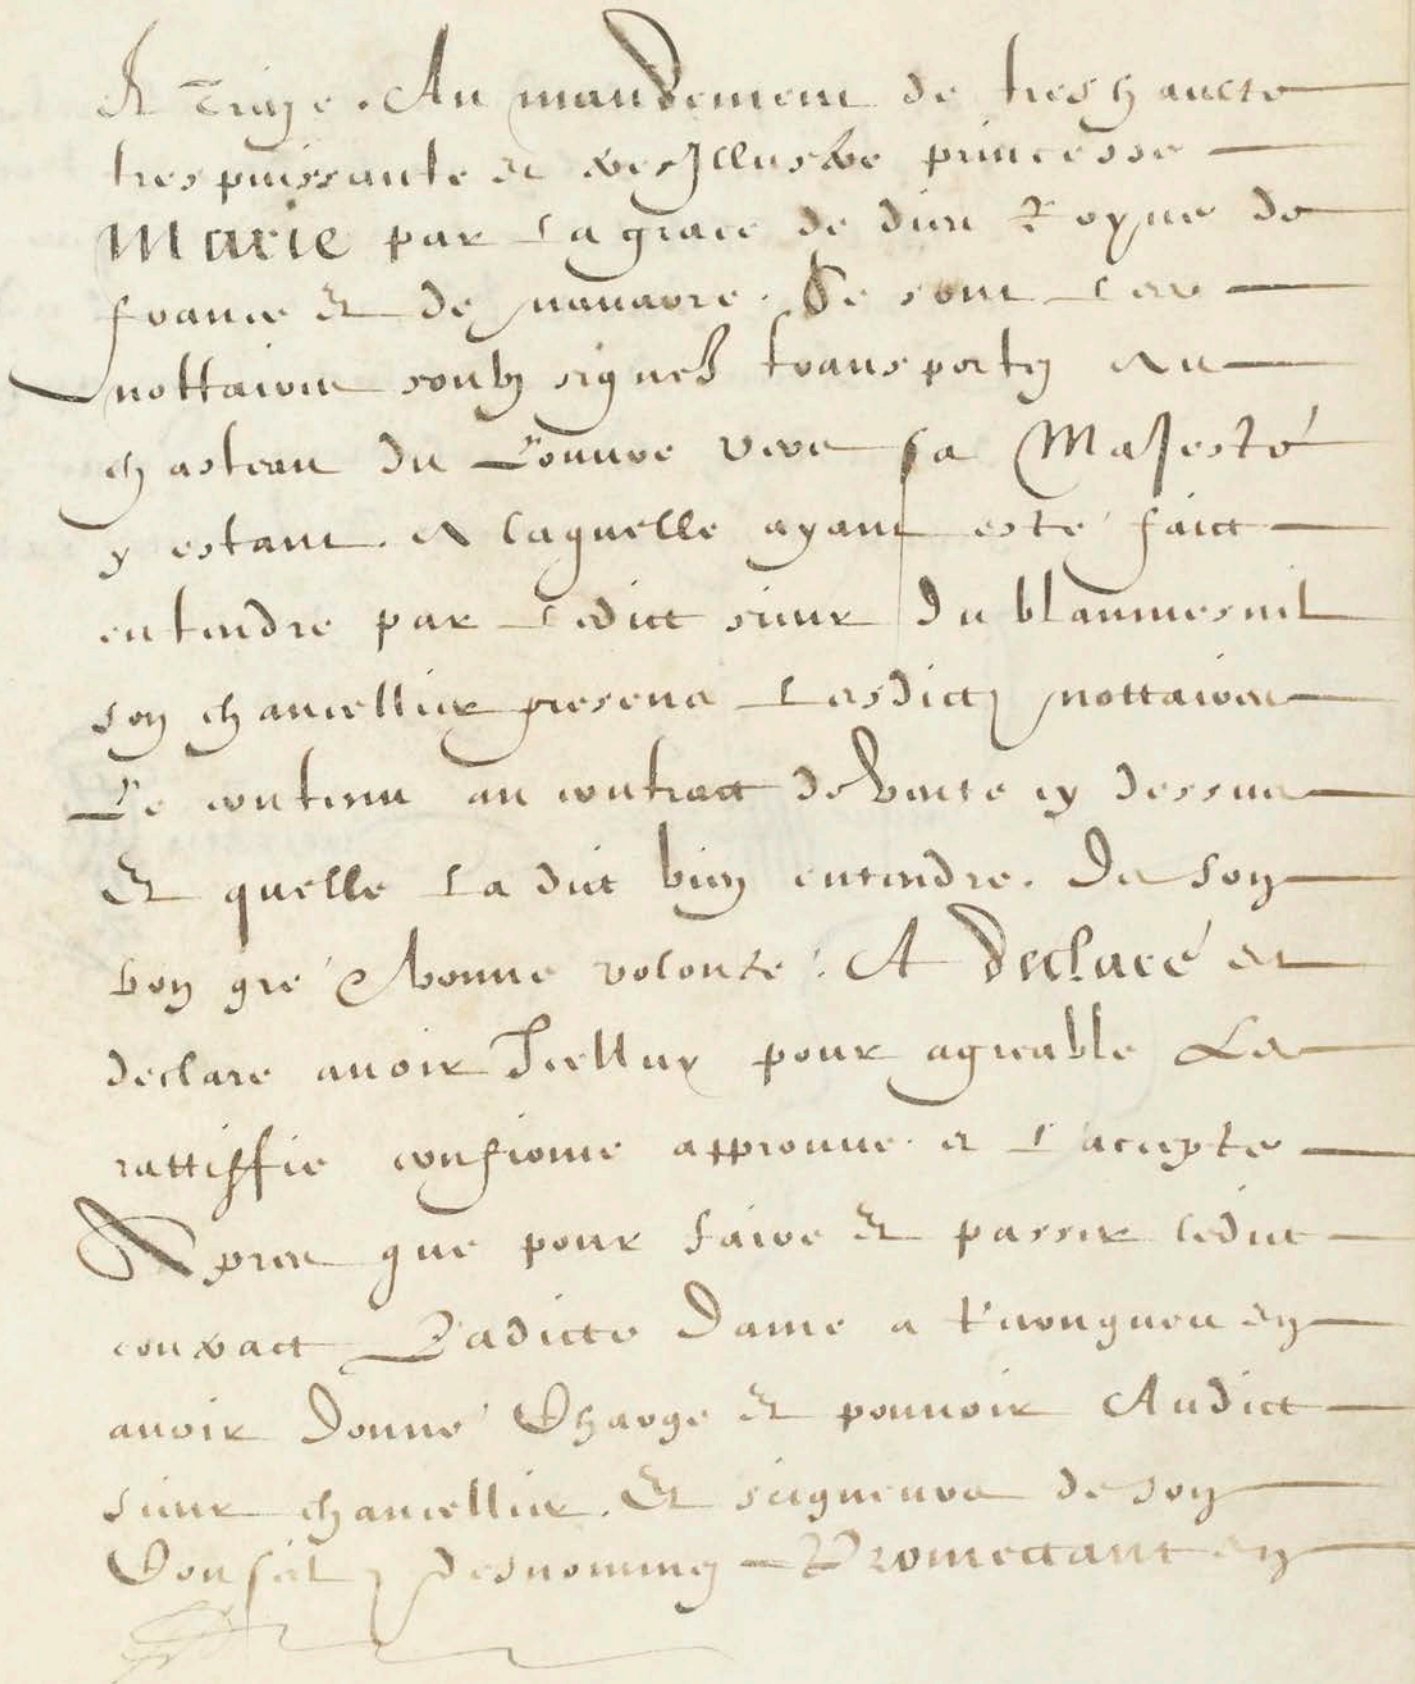 Et Treize. Au mandement de treshaulte
trespuissante et tresJllustre princesse
Marie par La grace de dieu Royne de
france Et de nauarre. Se sont Les
nottaires soubz signes transportez au
chasteau du Louure vers sa MaJesté
y estant. A laquelle ayant esté faict
entendre par Ledict sieur du blancmesnil
son chancellier presens Lesdictz nottaires
Le contenu au contract de Vente cy dessus
Et quelle La dict bien entendre. De son
bon gre et bonne volonte. A declaré et
declare auoir Jcelluy pour agreable Le
rattiffie confirme approuue et L'accepte
Apres que pour faire Et passer ledict
contract Ladicte Dame a Recongneu en
auoir donné Charge Et pouuoir Audict
sieur chancellier. Et seigneurs de son
Conseil desnommez Promectant en